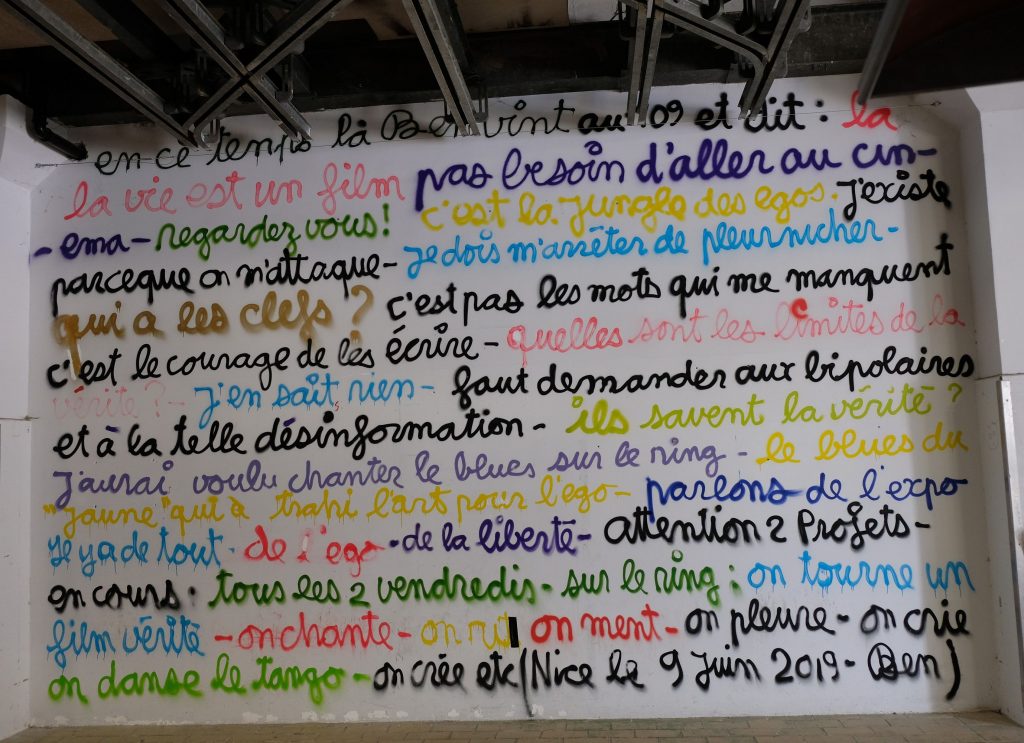 en ce temps là Ben vint au 109 et dit : la
la vie est un film pas besoin d'aller au cin-
- ema - regardez vous! c'est la jungle des egos. J'existe
parceque on m'attaque - je dois m'arrêter de pleurnicher -
qui a les clefs ? c'est pas les mots qui me manquent
c'est le courage de les écrire - quelles sont les limites de la
vérité ? - J'en sait rien - faut demander aux bipolaires
et à la telle désinformation - ils savent la vérité ?
J'aurai voulu chanter le blues sur le ring - le blues du
"Jaune" qui à trahi l'art pour l'ego - parlons de l'expo
ye ya de tout - de l'ego - de la liberté - attention 2 Projets -
en cours - tous les 2 vendredis - sur le ring : on tourne un
film vérité - on chante - on rit on ment - on pleure - on crie
on danse le tango - on crée etc (Nice le 9 Juin 2019 - Ben)